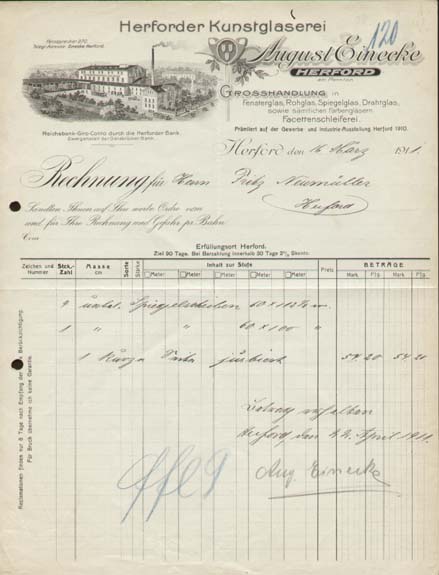 Herforder Kunstglaserei
120
Fernsprecher 270.
Telegr.-Adresse: Einecke Herford.
August Einecke
HERFORD
GROSSHANDLUNG in
Fensterglas, Rohglas, Spiegelglas, Drahtglas,
sowie sämtlichen Farbengläsern.
Facettenschleiferei.
Prämiiert auf der Gewerbe- und Industrie-Ausstellung Herford 1910.
Reichsbank-Giro-Conto durch die Herforder Bank.
Zweiganstalt der Osnabrücker Bank.
Herford den 16 März 1911.
Rechnung für Herrn Fritz Neumüller
Herford
Sandten Ihnen auf Ihre werte Ordre vom
und für Ihre Rechnung und Gefahr pr. Bahn.
Erfüllungsort Herford.
Ziel 90 Tage. Bei Barzahlung innerhalb 30 Tage 2% Skonto.
Zeichen und Nummer Stck.-Zahl Masse cm Sorte Stärke Inhalt zur Stufe Preis BETRÄGE
Meter Meter Meter Meter Meter Mark Pfg. Mark Pfg.
unbel. Spiegelscheiben 60 x 112½
1 " " 60 x 100 "
1 kurze Seite 54 20 54 20
Betrag erhalten
Herford den 22. April 1911.
Aug. Einecke
Reclamationen finden nur 8 Tage nach Empfang der Ware Berücksichtigung.
Für Bruch übernehme ich keine Garantie.